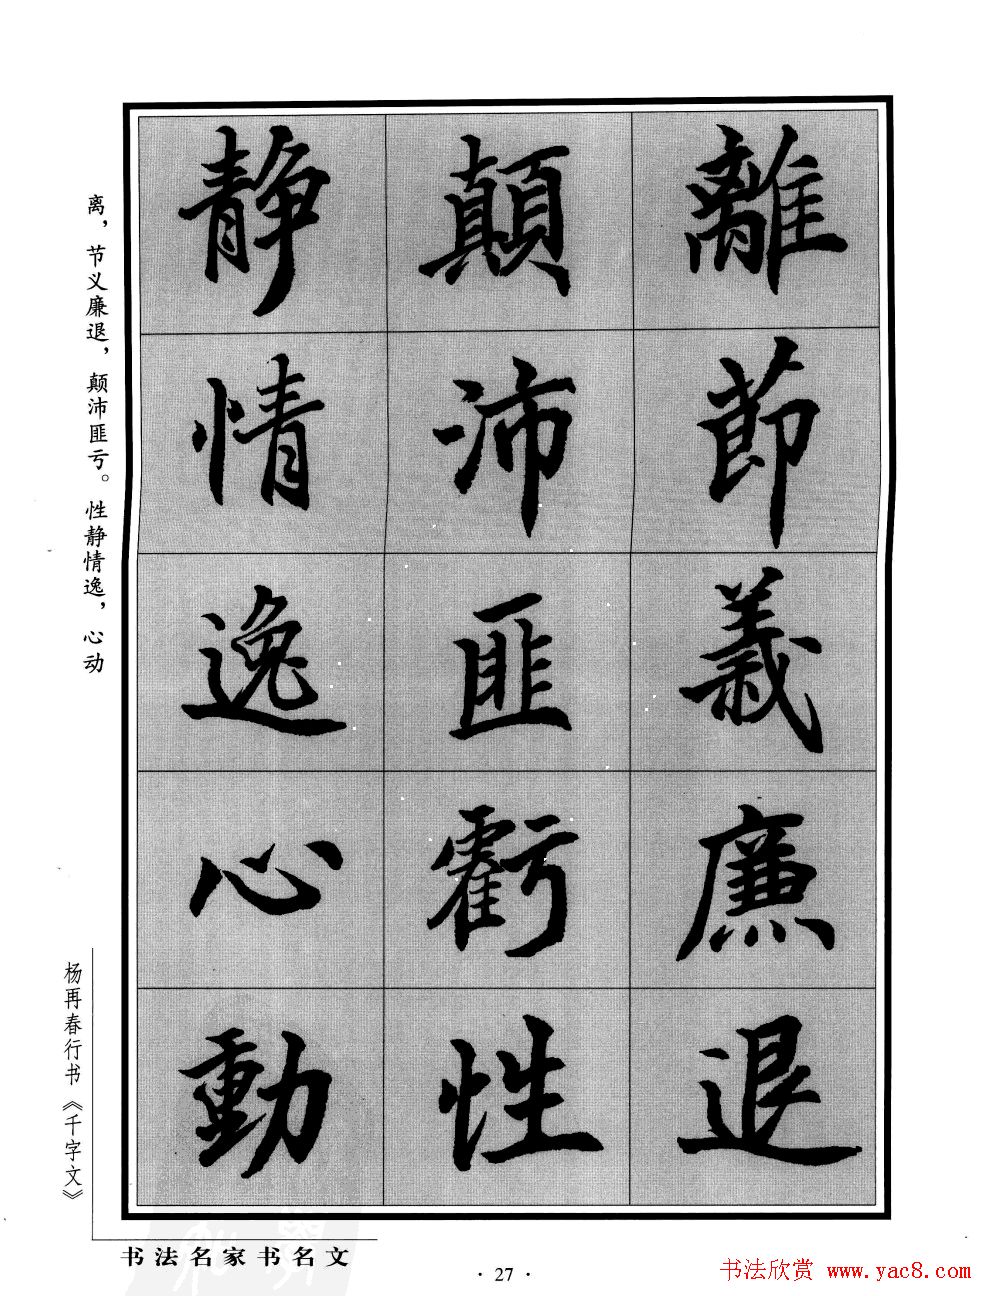 離節義廉退
顛沛匪虧性
静情逸心動
离，节义廉退，颠沛匪亏。性静情逸，心动
杨再春行书《千字文》
书法名家书名文
· 27 ·
书法欣赏 www.yac8.com